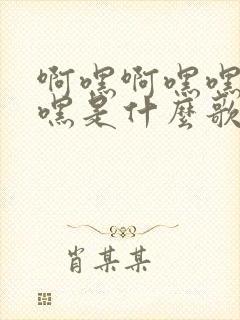 啊嘿啊嘿嘿
嘿是什麼歌
肖某某